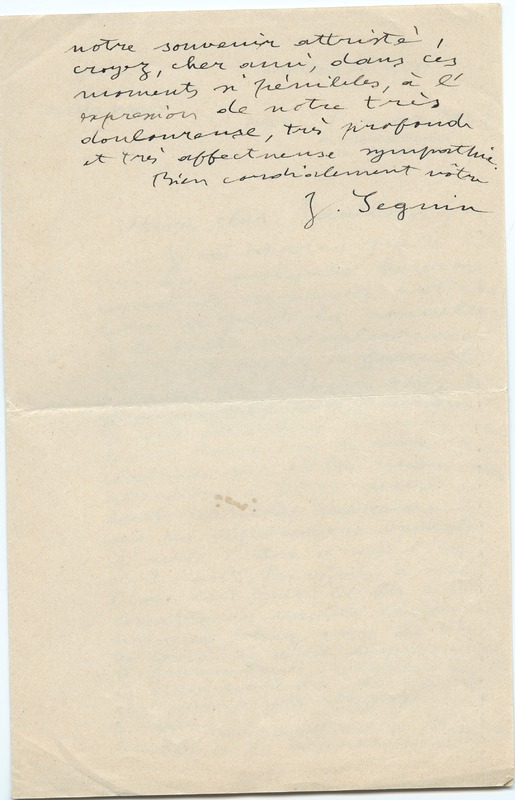 notre souvenir attristé,
croyez, cher ami, dans ces
moments si pénibles, à l'
expression de notre très
douloureuse, très profonde
et très affectueuse sympathie.
Bien cordialement vôtre
J. Seguin